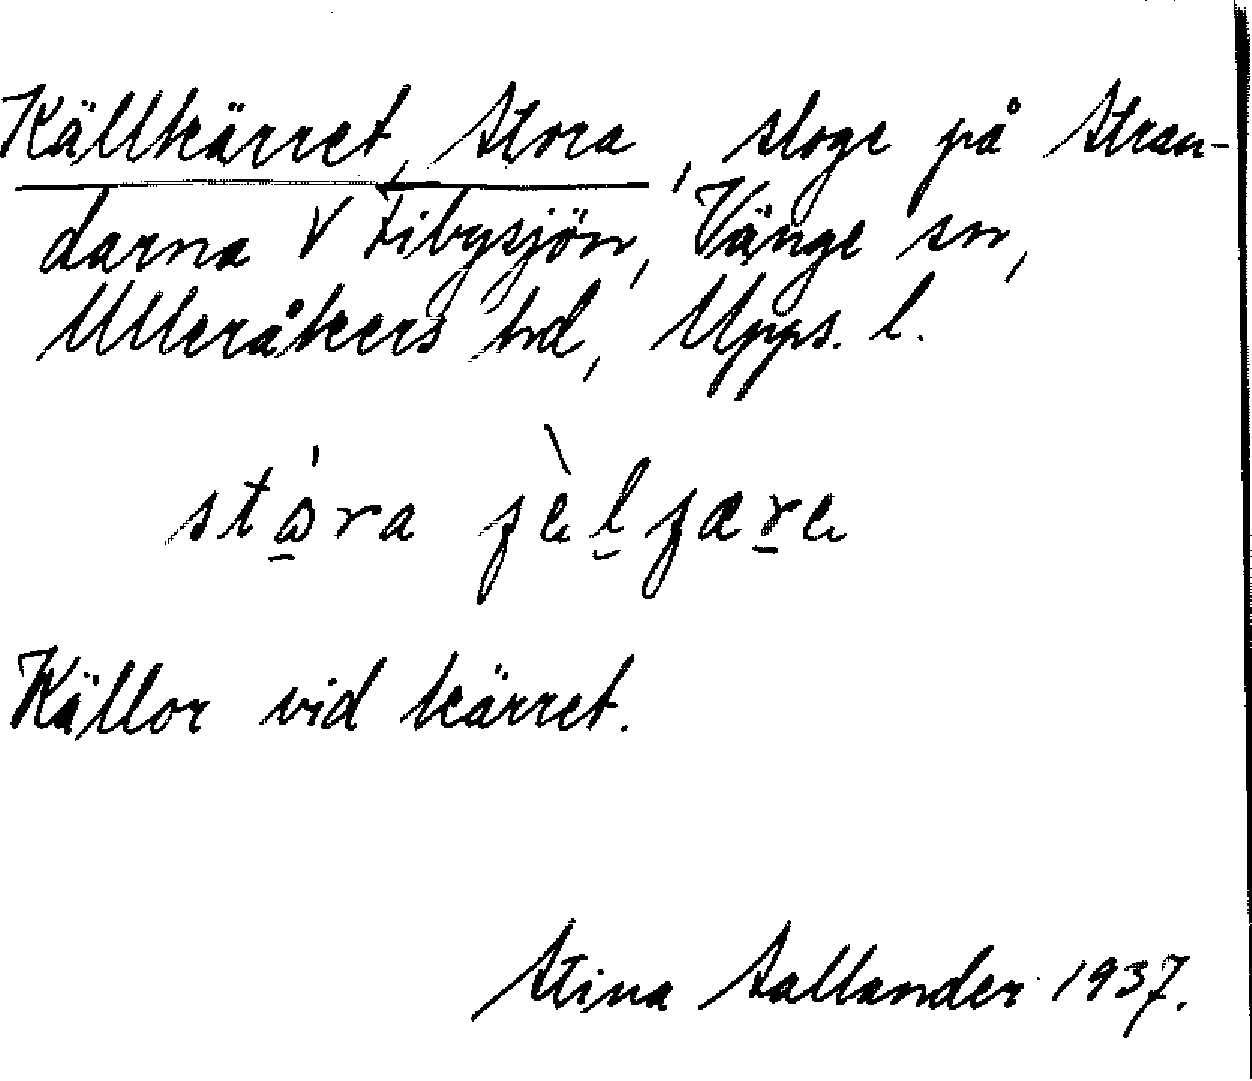 Källkärret, Stora, sloge på Stran-
darna V Fibysjön, Vänge sn,
Ulleråkers hd, Upps. l.
Källor vid kärret.
Stina Sallander 1937.